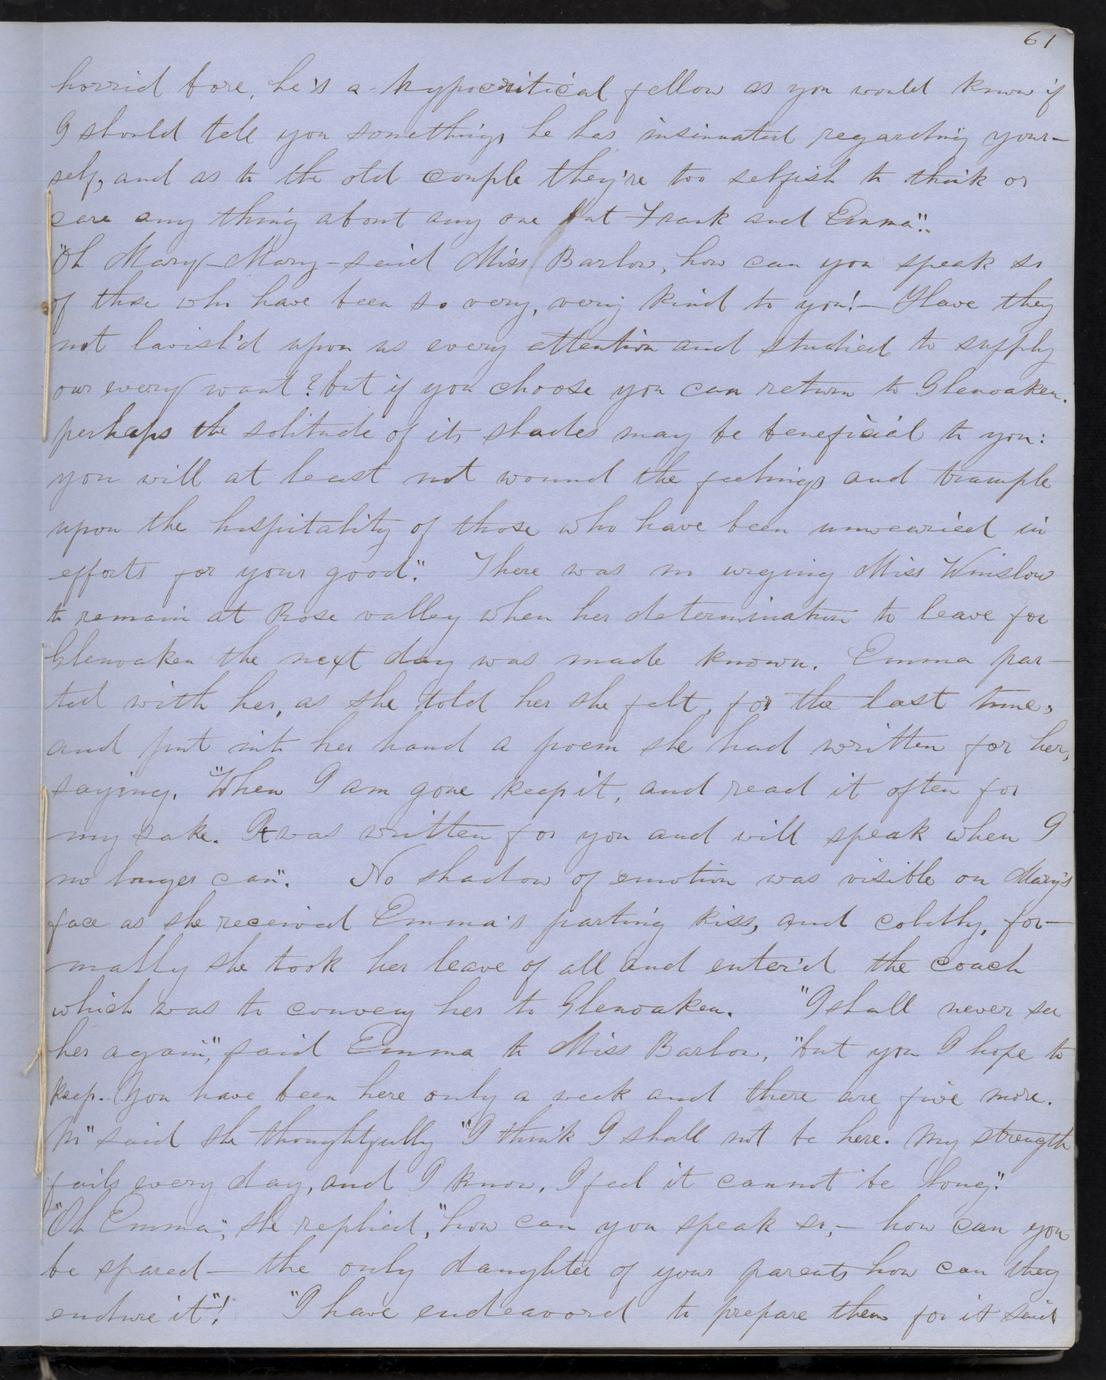 61
horrid bore, he's a hypocritical fellow as you would know if
I should tell you somethings he has insinuated regarding your-
self, and as to the old couple they're too selfish to think or
care any thing about any one but Frank and Emma".
"Oh Mary - Mary - said Miss Barlow, how can you speak so
of those who have been so very, very kind to you! - Have they
not lavish'd upon us every attention and studied to supply
our every want? but if you choose you can return to Glenoaken.
perhaps the solitude of its shades may be beneficial to you:
you will at least not wound the feelings and trample
upon the hospitality of those who have been unwearied in
efforts for your good". There was no urging Miss Winslow
to remain at Rose valley when her determination to leave for
Glenoaken the next day was made known. Emma par-
ted with her, as she told her she felt, for the last time,
and put into her hand a poem she had written for her,
saying. "When I am gone keep it, and read it often for
my sake. It was written for you and will speak when I
no longer can". No shadow of emotion was visible on Mary's
face as she received Emma's parting kiss, and coldly, for-
mally she took her leave of all and enter'd the coach
which was to convey her to Glenoaken. "I shall never see
her again", said Emma to Miss Barlow, "but you I hope to
keep. You have been here only a week and there are five more.
said she thoughtfully "I think I shall not be here. My strength
fails every day, and I know, I feel it cannot be long".
"Oh Emma", she replied, "how can you speak so, - how can you
be spared - the only daughter of your parents how can they
endure it"! "I have endeavord to prepare them for it said